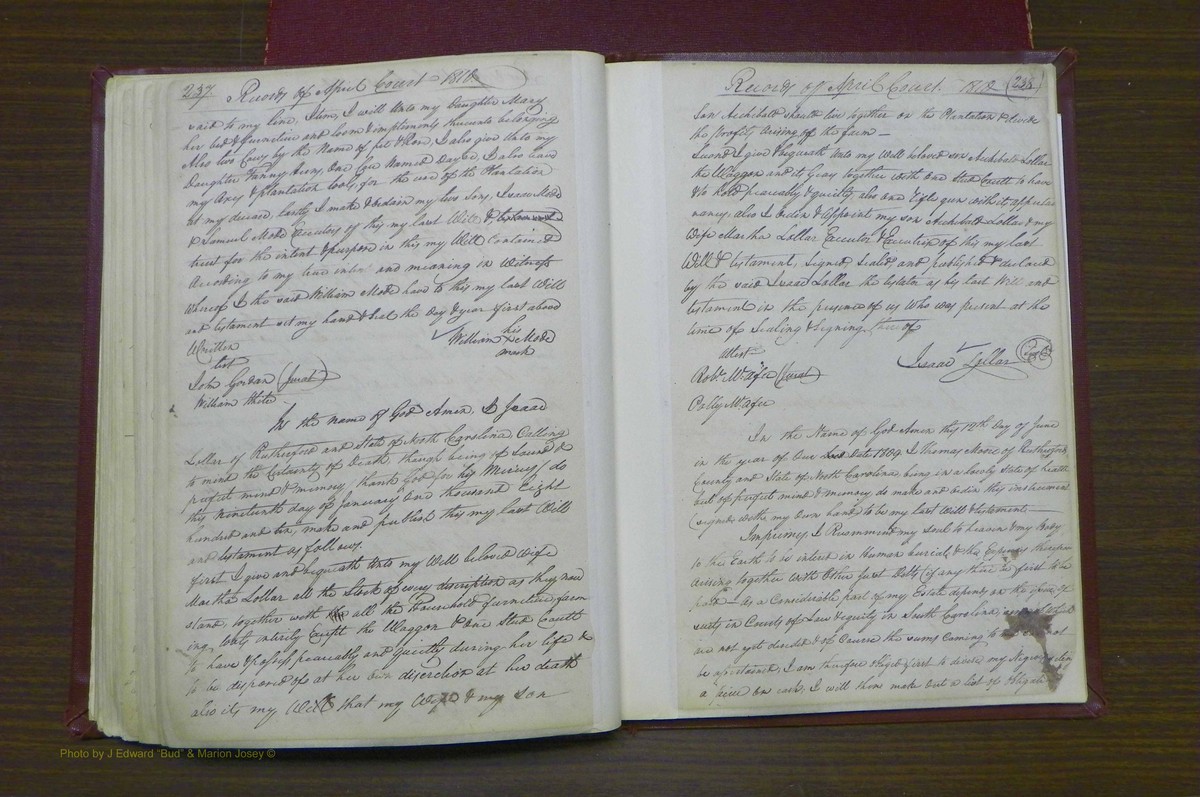 237 Records of April Court 1810
said to my Line, Item, I will Unto my Daughter Mary
her bed & furniture and loom & implements thereunto belonging
Also two Cows by the Name of pet & Rose, I also give Unto my
Daughter Fanny Avery, One Cow Named Dayse, I also leave
my Axes & plantation tools for the use of the Plantation
at my decease, lastly I make & ordain my two Sons, Isaac Mode
& Samuel Mode Executors of this my last Will &
trust for the intent & purpose in this my Will Contained
According to my true intent and meaning in Witness
Whereof I the said William Mode have to this my Last Will
and testament set my hand & Seal the day & year first above
Written
William his x mark Mode
test
John Gordan (Jurat)
William White
In the name of God Amen, I Isaac
Lollar of Rutherford and State of North Carolina, Calling
to mind the Certainty of Death, though being of Sound &
perfect mind & memory, thank God for his Mercys, do
this nineteenth day of January One thousand Eight
hundred and ten, make and publish this my Last Will
and testament as follows.
first I give and bequeath Unto my Well beloved Wife
Martha Lollar all the Stock of every description as they now
stand, together with all the Household furniture, farm
ing tools intirely Except the Waggon & One Stud Coult
to have & possess peaceably and quietly during her life &
to be disposed of at her own discretion at her death
also its my Will that my Wife & my son
Records of April Court 1810 (238)
Son Archibald should live together on the Plantation & divide
the profits arising of the farm —
Second I give & bequeath Unto my Well beloved son Archibald Lollar
the Waggon and its Gears together with One Stud Coult to have
& to Hold peaceably & quietly, also one Rifle gun with its appurte
nancy also I Ordain & Appoint my son Archibald Lollar & my
Wife Martha Lollar Executor & Executrix of this my last
Will & testament, Signed, Sealed, and published & declared
by the said Isaac Lollar the testator as his last Will and
testament in the presence of Us Who was present at the
time of Sealing & Signing thereof
Attest
Isaac Lollar (Seal)
Robt. McAfee (Jurat)
Polly McAfee
In the Name of God Amen this 19th Day of June
in the year of Our Date 1809 I Thomas Moore of Rutherford
County and State of North Carolina being in a lowly State of health
but of perfect mind & memory do make and ordain this instrument
signed with my Own hand to be my Last Will & testament —
Imprimis, I Recommend my Soul to heaven & my Body
to the Earth to be interred in Human burial, & the Expences therefrom
arising together with Other just Debts (if any there is) first to be
paid — As a Considerable part of my Estate depends on the of
suits in Courts of Law & equity in South Carolina,
are not yet decided & of Course the sums Coming to not
be ascertained, I am therefore obliged first to devise my Negroes
a piece On each, I will then make out a list of Obliga
Photo by J Edward "Bud" & Marion Josey ©